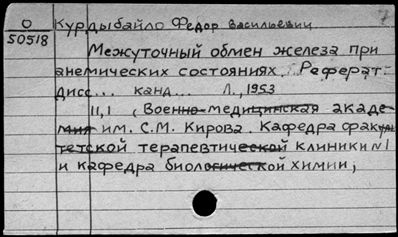 О
50518
Курдыбайло Федор Васильевич
Межуточный обмен железа при
анемических состояниях. Реферат
дисс... канд... Л., 1953
11,1 (Военно-медицинская акаде-
мия им. С.М. Кирова. Кафедра факуль-
тетской терапевтической клиники №1
и кафедра биологической химии,